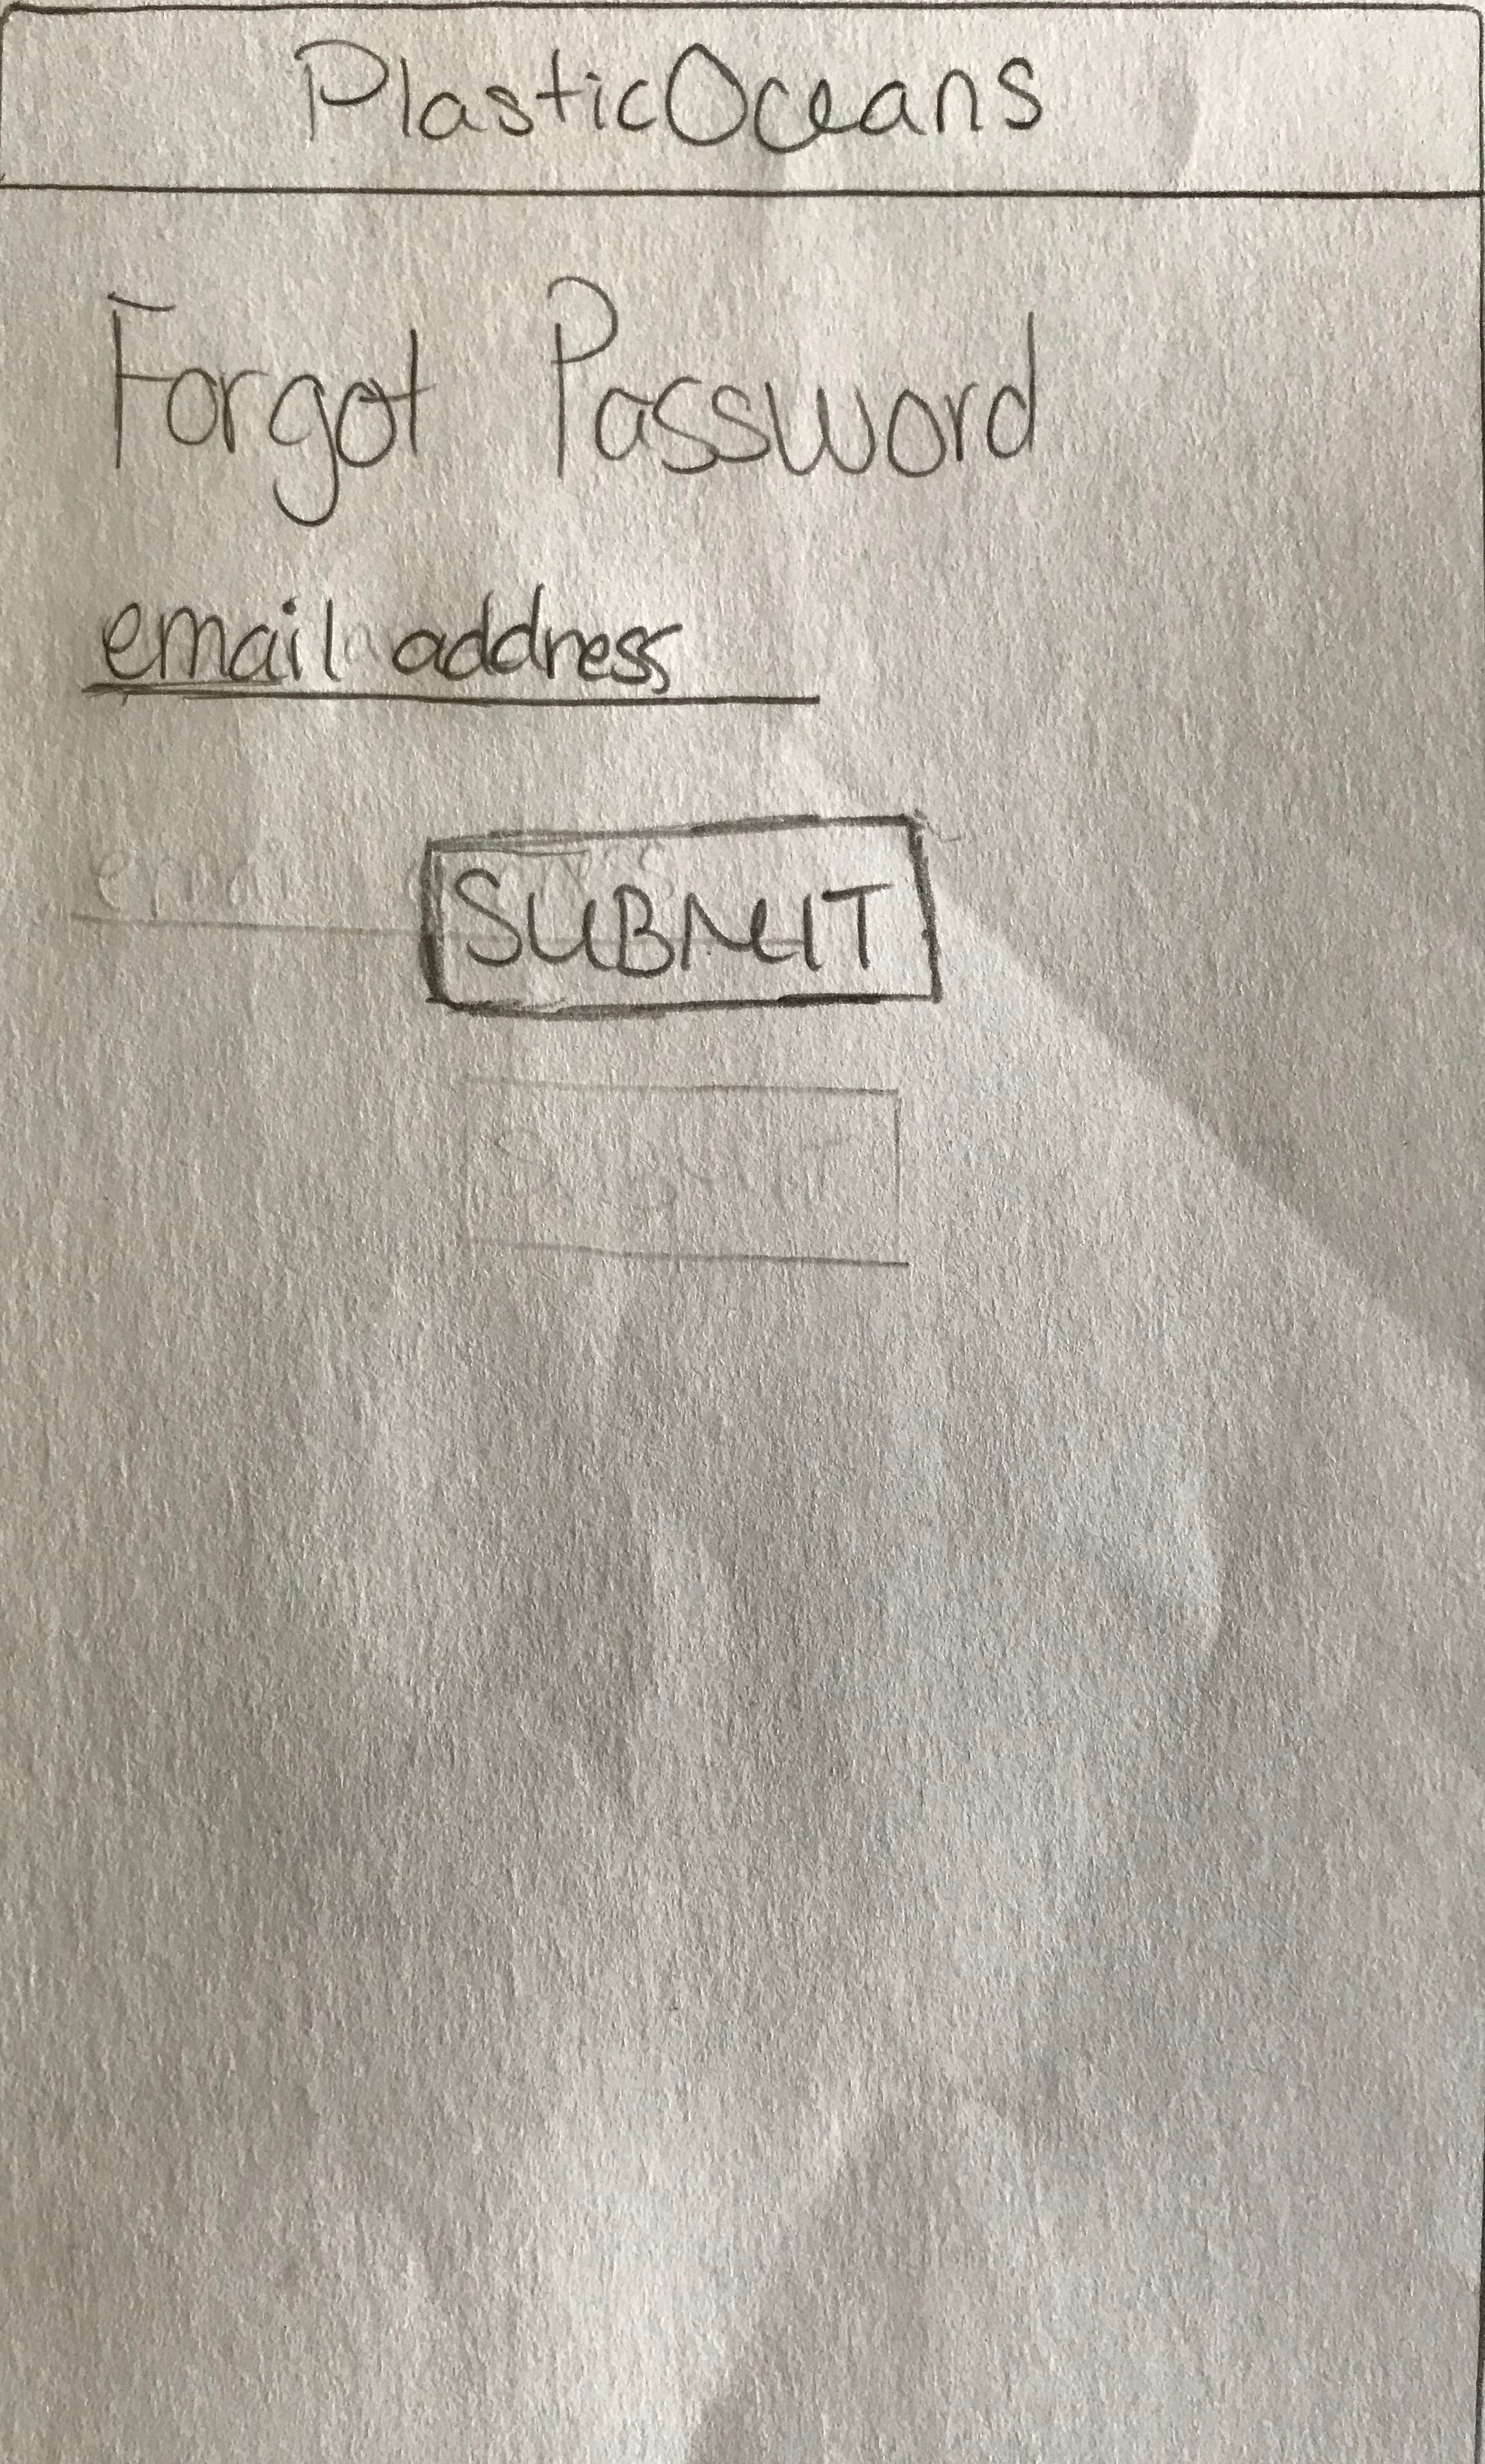 PlasticOceans
Forgot Password
email address
SUBMIT